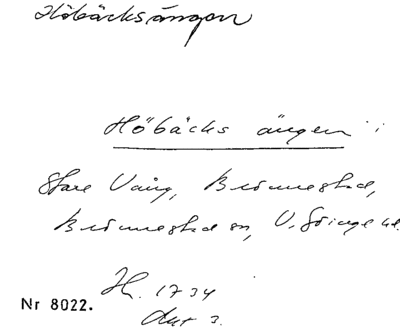 Höbäcksängen
Höbäcks ängen i
Stare Vång, Brönnestad,
Brönnestad sn, V. Göinge hd.
H. 1734
Akt 3.
Nr 8022.